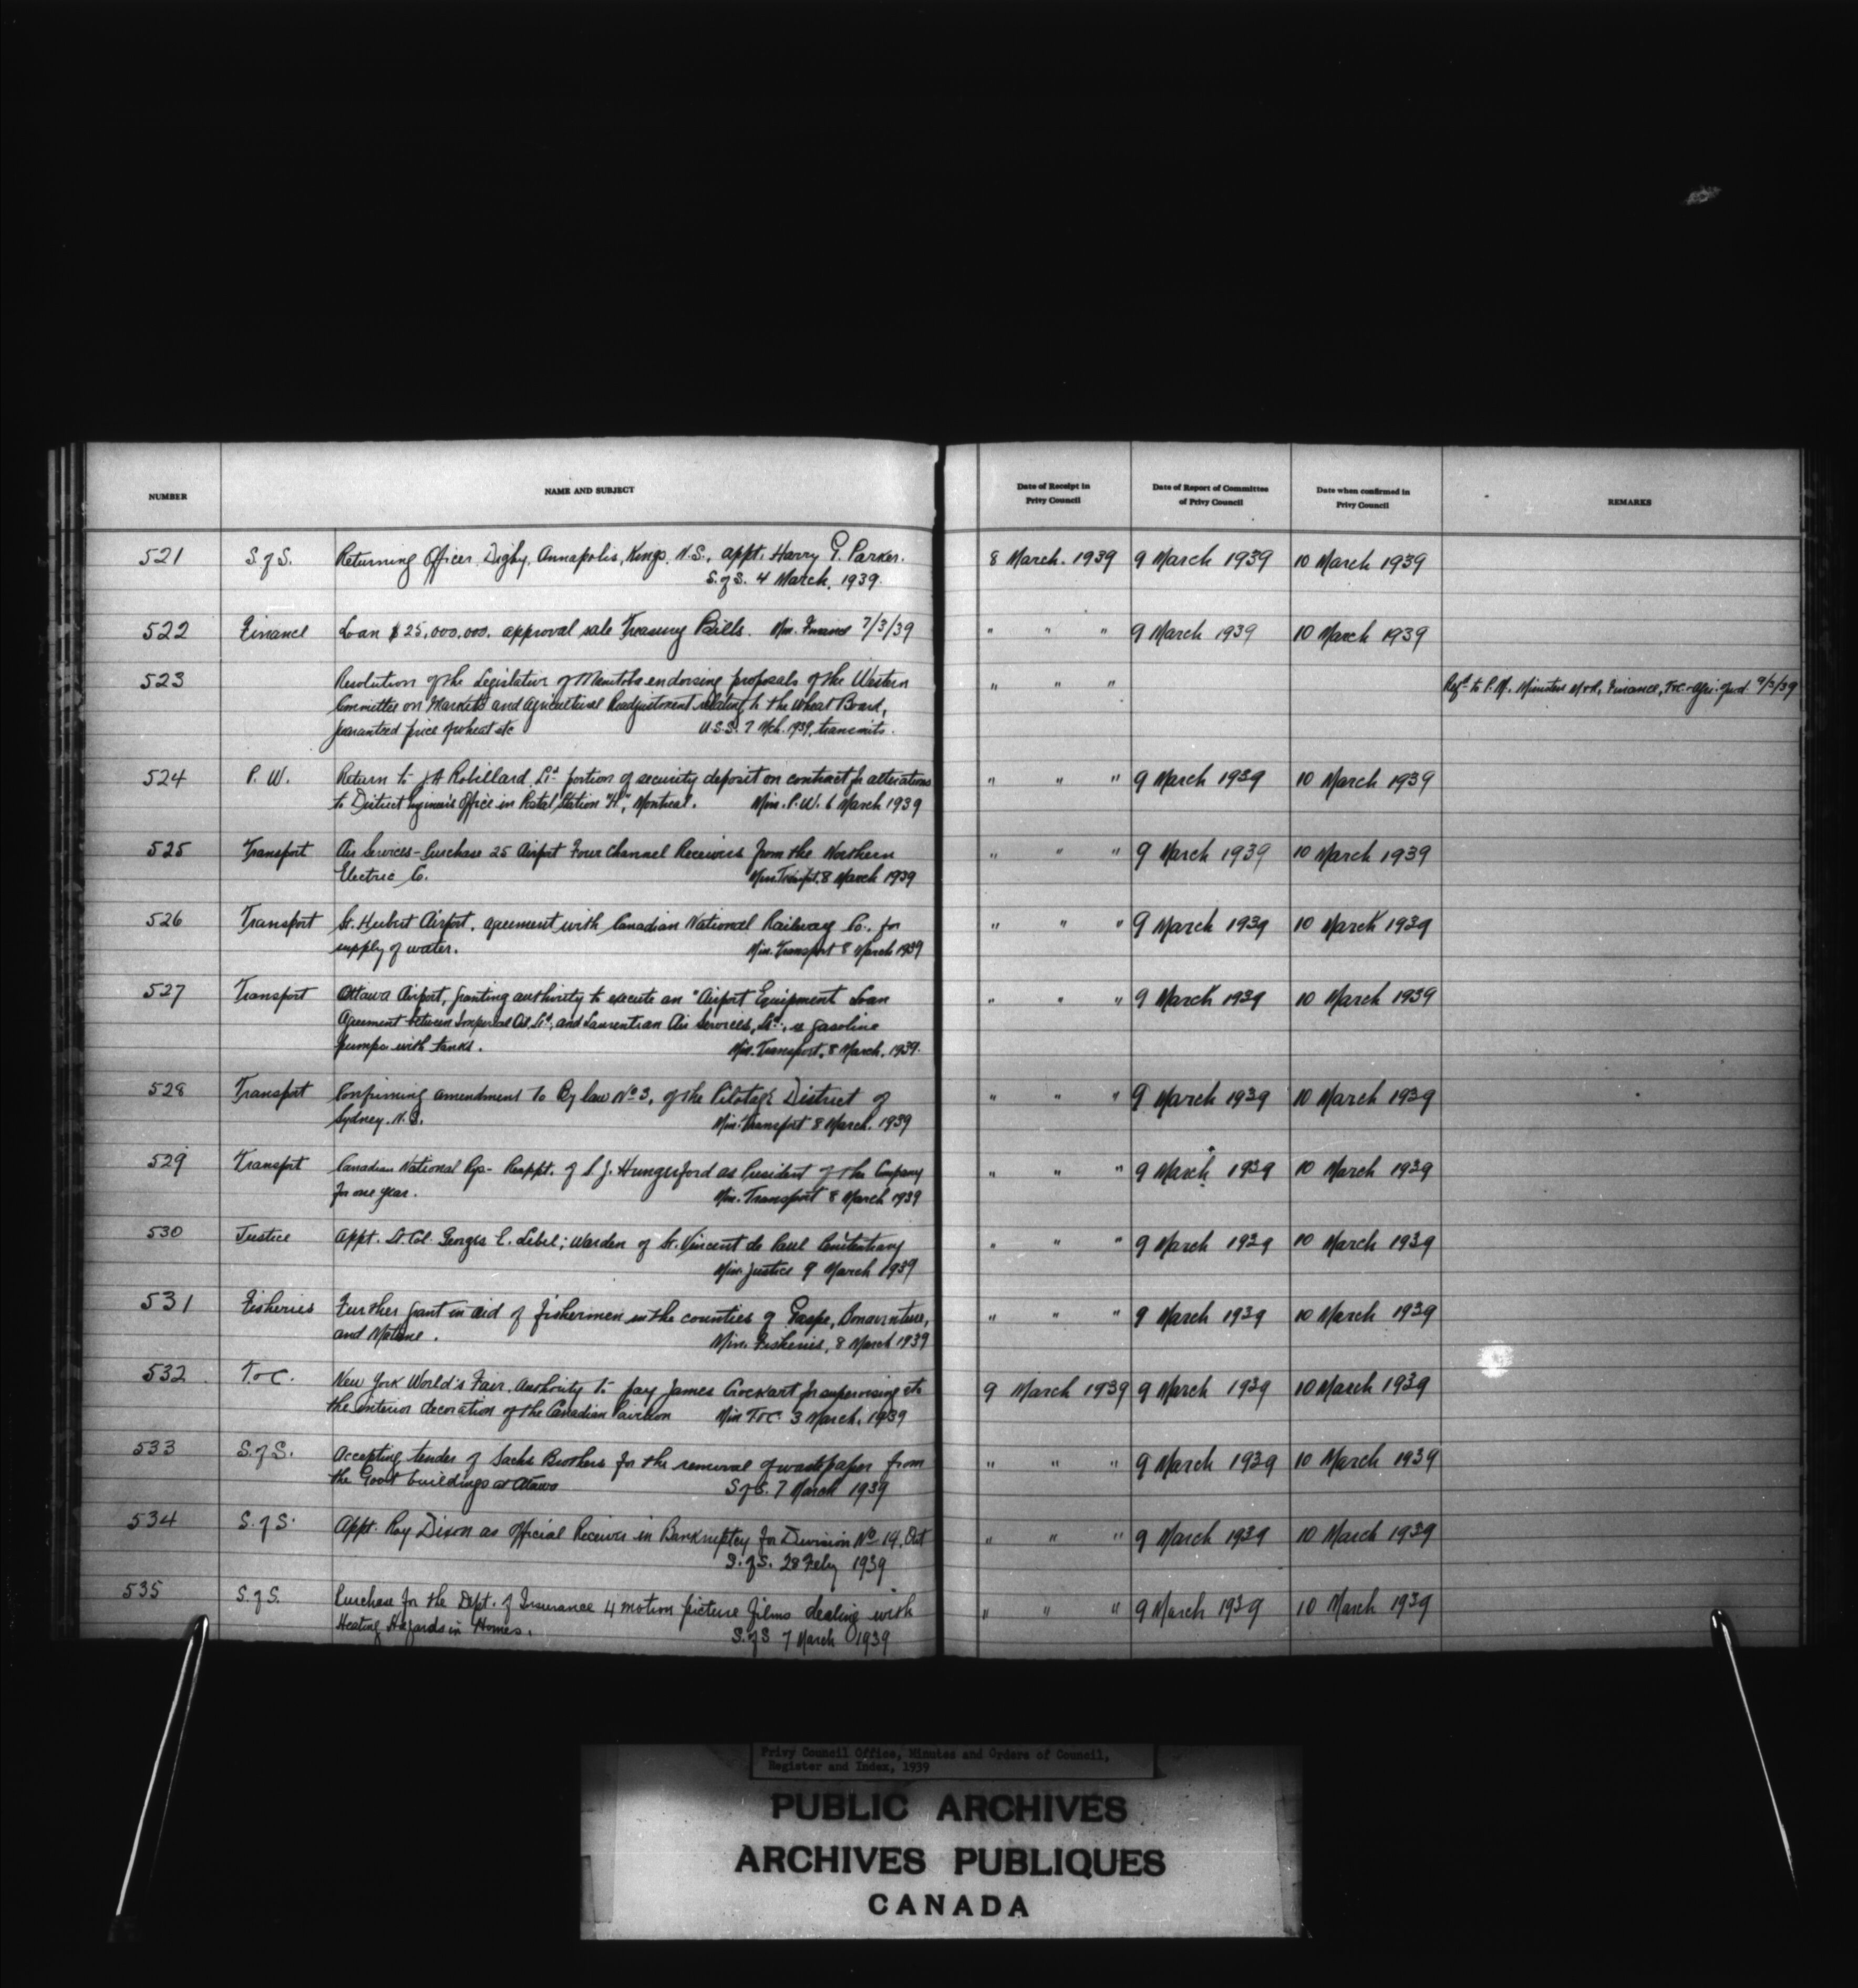 NUMBER NAME AND SUBJECT Date of Receipt in Privy Council Date of Report of Committee of Privy Council Date when confirmed in Privy Council REMARKS
521 S. of S. Returning Officer, Digby, Annapolis, Kings, N.S., appt. Harry G. Parker. 8 March. 1939 9 March 1939 10 March 1939
S. of S. 4 March, 1939.
522 Finance Loan $25,000,000. approval sale Treasury Bills. Min. Finance 7/3/39 " " " 9 March 1939 10 March 1939
523 Resolution of the Legislature of Manitoba endorsing proposals of the Western " " " Refd to P.M. Ministers Finance, T&C. Agri. 9/3/39
Committee on Markets and Agricultural Readjustment relating to the Wheat Board,
guaranteed price of wheat etc U.S.S. 7 Mch. 1939, transmits.
524 P. W. Return to J A Robillard, Ltd portion of security deposit on contract for alterations " " " 9 March 1939 10 March 1939
to District Engineer's Office in Postal Station "H", Montreal. Min. P.W. 6 March 1939
525 Transport Air Services - Purchase 25 Airport Four Channel Receivers from the Northern " " " 9 March 1939 10 March 1939
Electric Co. Min. Transpt. 8 March 1939
526 Transport St. Hubert Airport, agreement with Canadian National Railway Co. for " " " 9 March 1939 10 March 1939
supply of water. Min. Transport 8 March 1939
527 Transport Ottawa Airport, granting authority to execute an "Airport Equipment Loan " " " 9 March 1939 10 March 1939
Agreement between Imperial Oil Ltd, and Laurentian Air Services, Ltd., re gasoline
pumps with tanks. Min. Transport, 8 March, 1939.
528 Transport Confirming amendment to By law No 3, of the Pilotage District of " " " 9 March 1939 10 March 1939
Sydney. N.S. Min. Transport 8 March. 1939
529 Transport Canadian National Rys - Reappt. of S. J. Hungerford as President of the Company " " " 9 March 1939 10 March 1939
for one year. Min. Transport 8 March 1939
530 Justice Appt. Lt. Col. Georges E. Lebel; Warden of St. Vincent de Paul Penitentiary " " " 9 March 1939 10 March 1939
Min. Justice 9 March 1939
531 Fisheries Further grant in aid of fishermen in the counties of Gaspe, Bonaventure, " " " 9 March 1939 10 March 1939
and Matane. Min. Fisheries, 8 March 1939
532 T. & C. New York World's Fair. Authority to pay James Crockart for supervising etc 9 March 1939 9 March 1939 10 March 1939
the interior decoration of the Canadian Pavilion Min T&C. 3 March, 1939
533 S. of S. Accepting tender of Sachs Brothers for the removal of wastepaper from " " " 9 March 1939 10 March 1939
the Govt buildings at Ottawa S of S. 7 March 1939
534 S. of S. Appt. Roy Dixon as Official Receiver in Bankruptcy for Division No 14, Ont " " " 9 March 1939 10 March 1939
S. of S. 28 Feby 1939
535 S. of S. Purchase for the Dept. of Insurance 4 motion picture films dealing with " " " 9 March 1939 10 March 1939
Heating Hazards in Homes. S. of S 7 March 1939
Privy Council Office, Minutes and Orders of Council,
Register and Index, 1939
PUBLIC ARCHIVES
ARCHIVES PUBLIQUES
CANADA